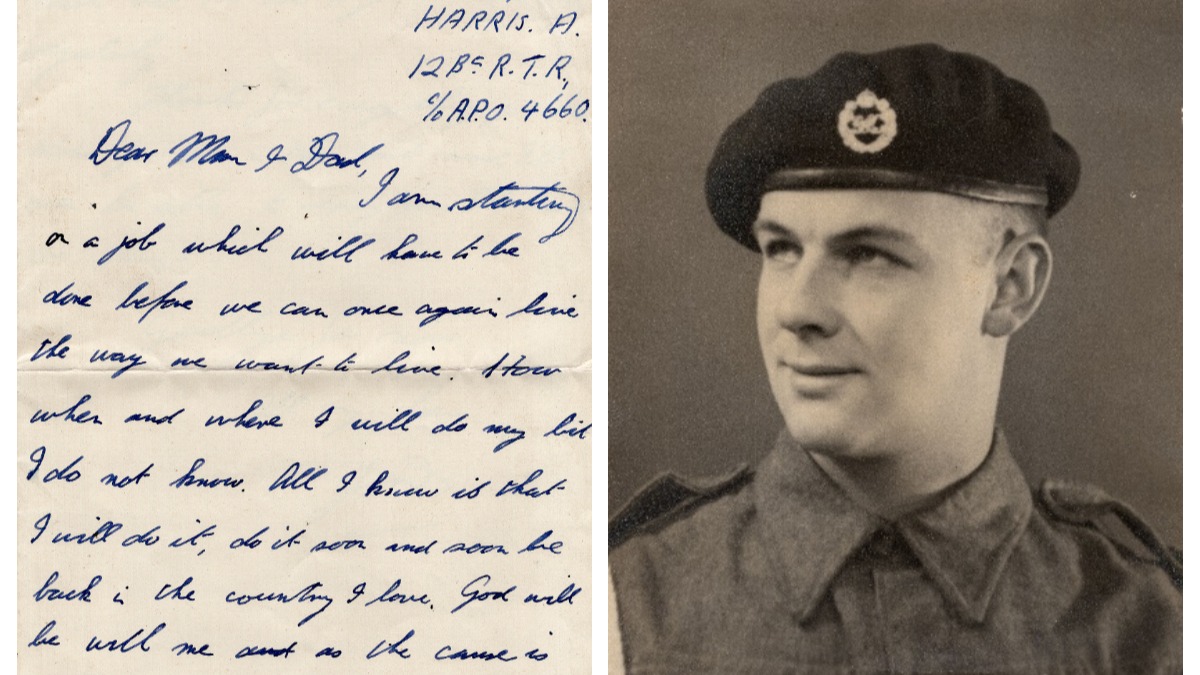 HARRIS. A.
12 Bn R.T.R.,
c/o A.P.O. 4660.
Dear Mum & Dad,
I am starting
on a job which will have to be
done before we can once again live
the way we want to live. How
when and where I will do my bit
I do not know. All I know is that
I will do it, do it soon and soon be
back in the country I love. God will
be with me and as the cause is